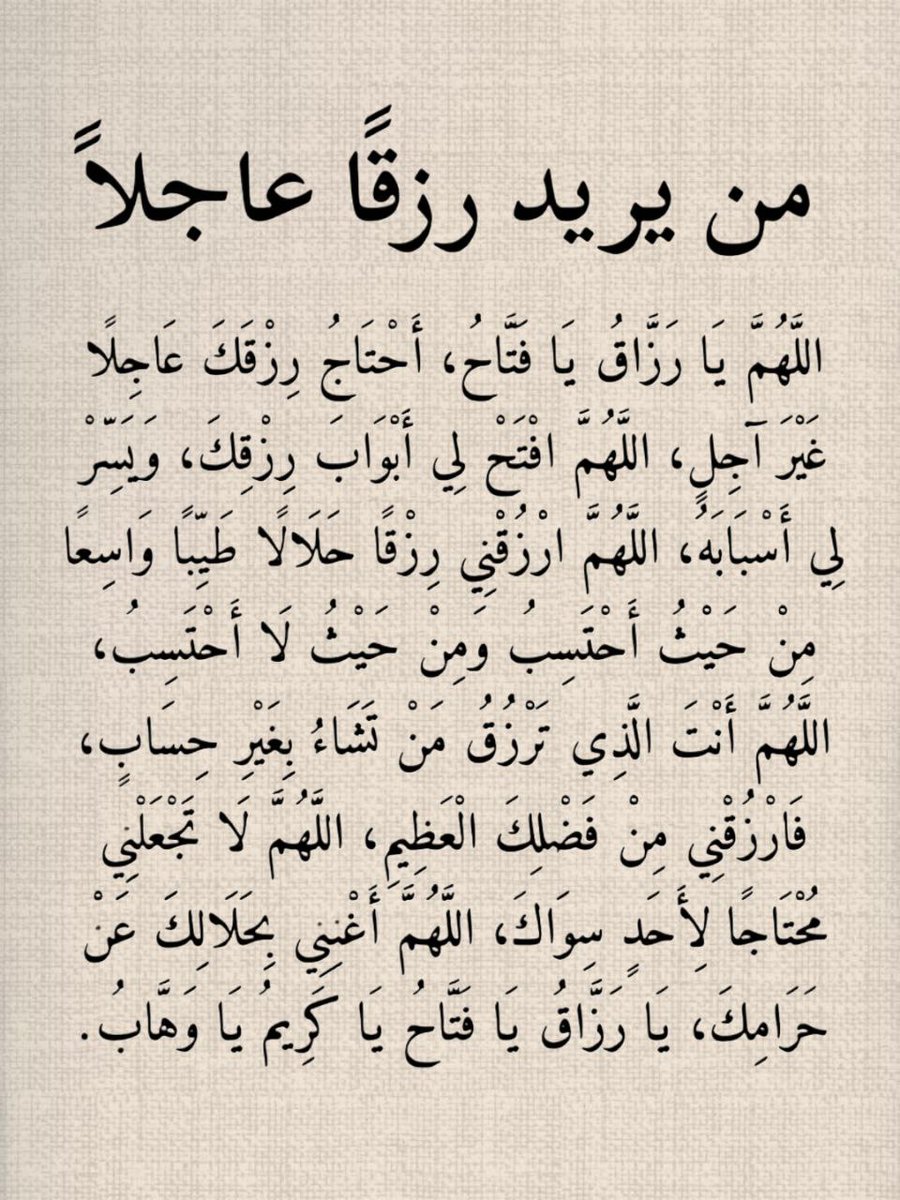 من يريد رزقًا عاجلاً
اللَّهُمَّ يَا رَزَّاقُ يَا فَتَّاحُ، أَحْتَاجُ رِزْقَكَ عَاجِلًا
غَيْرَ آجِلٍ، اللَّهُمَّ افْتَحْ لِي أَبْوَابَ رِزْقِكَ، وَيَسِّرْ
لِي أَسْبَابَهُ، اللَّهُمَّ ارْزُقْنِي رِزْقًا حَلَالًا طَيِّبًا وَاسِعًا
مِنْ حَيْثُ أَحْتَسِبُ وَمِنْ حَيْثُ لَا أَحْتَسِبُ،
اللَّهُمَّ أَنْتَ الَّذِي تَرْزُقُ مَنْ تَشَاءُ بِغَيْرِ حِسَابٍ،
فَارْزُقْنِي مِنْ فَضْلِكَ الْعَظِيمِ، اللَّهُمَّ لَا تَجْعَلْنِي
مُحْتَاجًا لِأَحَدٍ سِوَاكَ، اللَّهُمَّ أَغْنِنِي بِحَلَالِكَ عَنْ
حَرَامِكَ، يَا رَزَّاقُ يَا فَتَّاحُ يَا كَرِيمُ يَا وَهَّابُ.